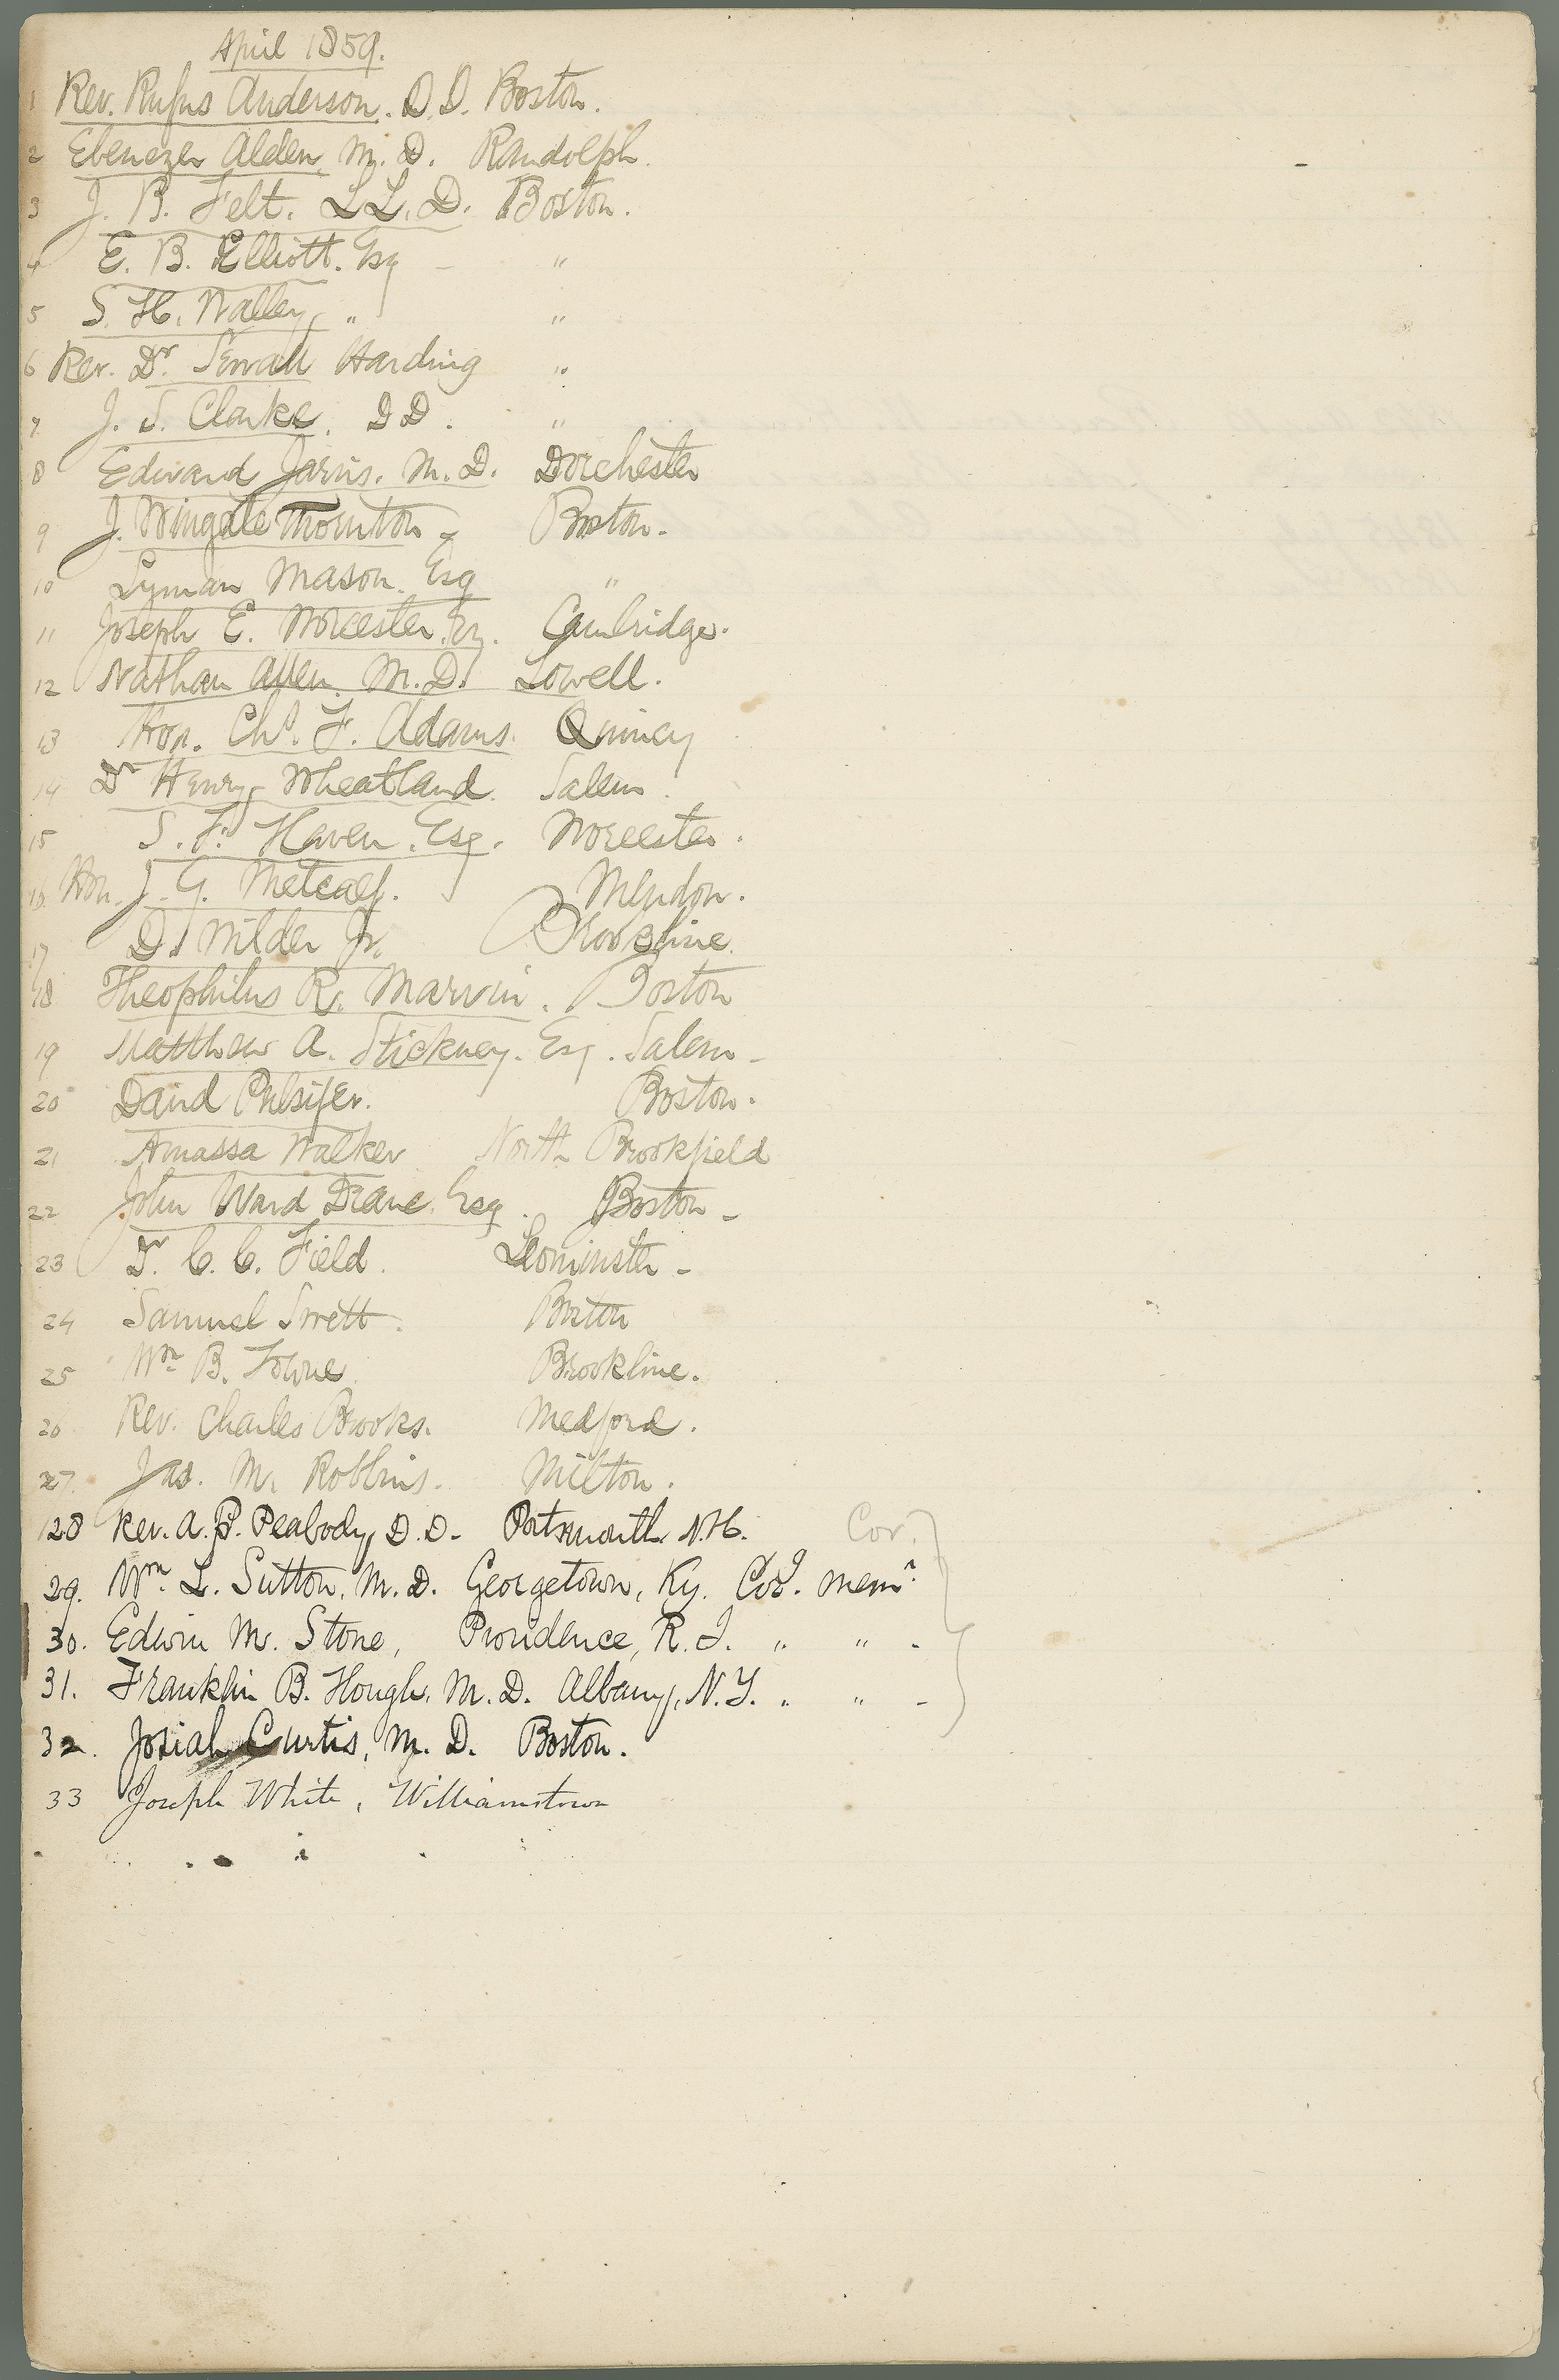 April 1859.
1 Rev. Rufus Anderson. D. D. Boston.
2 Ebenezer Alden, M. D. Randolph.
3 J. B. Felt. LL. D. Boston.
4 E. B. Elliott. Esq - "
5 S. H. Walley, " "
6 Rev. Dr. Sewall Harding "
7 J. S. Clarke. D D. "
8 Edward Jarvis. M. D. Dorchester
9 J. Wingate Thornton - Boston.
10 Lyman Mason. Esq "
11 Joseph E. Worcester. Esq. Cambridge.
12 Nathan Allen. M. D. Lowell.
13 Hon. Chs. F. Adams. Quincy
14 Dr Henry Wheatland. Salem.
15 S. F. Haven. Esq. Worcester.
16 Hon. J. G. Metcalf. Mendon.
17 D. Wilder Jr. Brookline.
18 Theophilus R. Marvin. Boston
19 Matthew A. Stickney. Esq. Salem -
20 David Pulsifer. Boston.
21 Amassa Walker North Brookfield
22 John Ward Deane. Esq. Boston -
23 Dr. C. C. Field. Leominster -
24 Samuel Swett. Boston
25 Wm B. Towne. Brookline.
26 Rev. Charles Brooks. Medford.
27. Jas. M. Robbins. Milton.
28 Rev. A. P. Peabody, D. D. Portsmouth. N. H. Cor.
29. Wm. L. Sutton, M. D. Georgetown, Ky. Cor. Mem.
30. Edwin M. Stone, Providence, R. I. " " -
31. Franklin B. Hough, M. D. Albany, N. Y. " " -
32. Josiah Curtis, M. D. Boston.
33 Joseph White, Williamstown